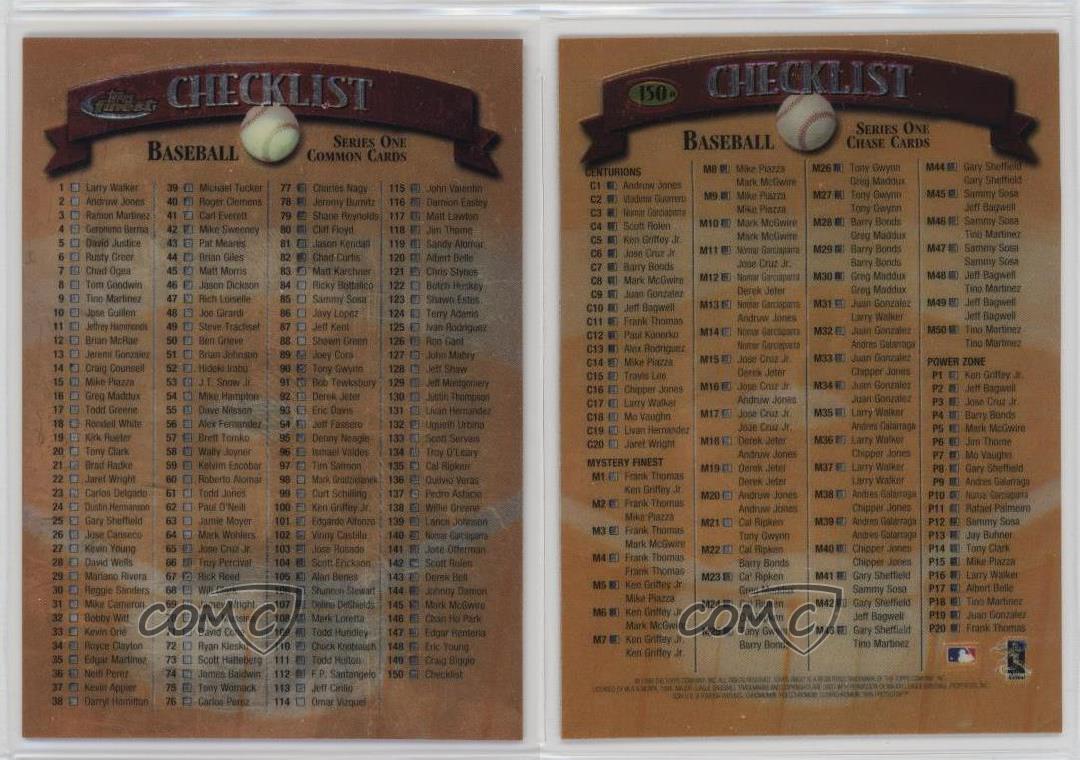 Topps
Finest
CHECKLIST
BASEBALL
SERIES ONE
COMMON CARDS
1 Larry Walker
2 Andruw Jones
3 Ramon Martinez
4 Geronimo Berroa
5 David Justice
6 Rusty Greer
7 Chad Ogea
8 Tom Goodwin
9 Tino Martinez
10 Jose Guillen
11 Jeffrey Hammonds
12 Brian McRae
13 Jeremi Gonzalez
14 Craig Counsell
15 Mike Piazza
16 Greg Maddux
17 Todd Greene
18 Rondell White
19 Kirk Rueter
20 Tony Clark
21 Brad Radke
22 Jaret Wright
23 Carlos Delgado
24 Dustin Hermanson
25 Gary Sheffield
26 Jose Canseco
27 Kevin Young
28 David Wells
29 Mariano Rivera
30 Reggie Sanders
31 Mike Cameron
32 Bobby Witt
33 Kevin Orie
34 Royce Clayton
35 Edgar Martinez
36 Neifi Perez
37 Kevin Appier
38 Darryl Hamilton
39 Michael Tucker
40 Roger Clemens
41 Carl Everett
42 Mike Sweeney
43 Pat Meares
44 Brian Giles
45 Matt Morris
46 Jason Dickson
47 Rich Loiselle
48 Joe Girardi
49 Steve Trachsel
50 Ben Grieve
51 Brian Johnson
52 Hideki Irabu
53 J.T. Snow Jr.
54 Mike Hampton
55 Dave Nilsson
56 Alex Fernandez
57 Brett Tomko
58 Wally Joyner
59 Kelvim Escobar
60 Roberto Alomar
61 Todd Jones
62 Paul O'Neill
63 Jamie Moyer
64 Mark Wohlers
65 Jose Cruz Jr.
66 Troy Percival
67 Rick Reed
68 Will Clark
69 Wright
David Co
72 Ryan Klesko
73 Scott Hatteberg
74 James Baldwin
75 Tony Womack
76 Carlos Perez
77 Charles Nagy
78 Jeromy Burnitz
79 Shane Reynolds
80 Cliff Floyd
81 Jason Kendall
82 Chad Curtis
83 Matt Karchner
84 Ricky Bottalico
85 Sammy Sosa
86 Javy Lopez
87 Jeff Kent
88 Shawn Green
89 Joey Cora
90 Tony Gwynn
91 Bob Tewksbury
92 Derek Jeter
93 Eric Davis
94 Jeff Fassero
95 Denny Neagle
96 Ismael Valdes
97 Tim Salmon
98 Mark Grudzielanek
99 Curt Schilling
100 Ken Griffey Jr.
101 Edgardo Alfonzo
102 Vinny Castilla
103 Jose Rosado
104 Scott Erickson
105 Alan Benes
Shannon Stewart
107 Delino DeShields
108 Mark Loretta
Todd Hundley
110 Chuck Knoblauch
111 Todd Helton
112 F.P. Santangelo
113 Jeff Cirillo
114 Omar Vizquel
115 John Valentin
116 Damion Easley
117 Matt Lawton
118 Jim Thome
119 Sandy Alomar
120 Albert Belle
121 Chris Stynes
122 Butch Huskey
123 Shawn Estes
124 Terry Adams
125 Ivan Rodriguez
126 Ron Gant
127 John Mabry
128 Jeff Shaw
129 Jeff Montgomery
130 Justin Thompson
131 Livan Hernandez
132 Ugueth Urbina
133 Scott Servais
134 Troy O'Leary
135 Cal Ripken
136 Quilvio Veras
137 Pedro Astacio
138 Willie Greene
139 Lance Johnson
140 Nomar Garciaparra
141 Jose Offerman
142 Scott Rolen
143 Derek Bell
144 Johnny Damon
145 Mark McGwire
146 Chan Ho Park
147 Edgar Renteria
148 Eric Young
149 Craig Biggio
150 Checklist
COMC
150
CHECKLIST
BASEBALL
SERIES ONE
CHASE CARDS
CENTURIONS
C1 Andruw Jones
C2 Vladimir Guerrero
C3 Nomar Garciaparra
C4 Scott Rolen
C5 Ken Griffey Jr.
C6 Jose Cruz Jr.
C7 Barry Bonds
C8 Mark McGwire
C9 Juan Gonzalez
C10 Jeff Bagwell
C11 Frank Thomas
C12 Paul Konerko
C13 Alex Rodriguez
C14 Mike Piazza
C15 Travis Lee
C16 Chipper Jones
C17 Larry Walker
C18 Mo Vaughn
C19 Livan Hernandez
C20 Jaret Wright
MYSTERY FINEST
M1 Frank Thomas
Ken Griffey Jr.
M2 Frank Thomas
Mike Piazza
M3 Frank Thomas
Mark McGwire
M4 Frank Thomas
Frank Thomas
M5 Ken Griffey Jr.
Mike Piazza
M6 Ken Griffey Jr.
Mark McGwire
M7 Ken Griffey Jr.
Ken Griffey Jr.
M8 Mike Piazza
Mark McGwire
M9 Mike Piazza
Mike Piazza
M10 Mark McGwire
Mark McGwire
M11 Nomar Garciaparra
Jose Cruz Jr.
M12 Nomar Garciaparra
Derek Jeter
M13 Nomar Garciaparra
Andruw Jones
M14 Nomar Garciaparra
Nomar Garciaparra
M15 Jose Cruz Jr.
Derek Jeter
M16 Jose Cruz Jr.
Andruw Jones
M17 Jose Cruz Jr.
Jose Cruz Jr.
M18 Derek Jeter
Andruw Jones
M19 Derek Jeter
Derek Jeter
M20 Andruw Jones
Andruw Jones
M21 Cal Ripken
Tony Gwynn
M22 Cal Ripken
Barry Bonds
M23 Cal Ripken
Greg Maddux
M24 Cal Ripken
Cal Ripken
Tony Gwynn
Barry Bonds
M26 Tony Gwynn
Greg Maddux
M27 Tony Gwynn
Tony Gwynn
M28 Barry Bonds
Greg Maddux
M29 Barry Bonds
Barry Bonds
M30 Greg Maddux
Greg Maddux
M31 Juan Gonzalez
Larry Walker
M32 Juan Gonzalez
Andres Galarraga
M33 Juan Gonzalez
Chipper Jones
M34 Juan Gonzalez
Juan Gonzalez
M35 Larry Walker
Andres Galarraga
M36 Larry Walker
Chipper Jones
M37 Larry Walker
Larry Walker
M38 Andres Galarraga
Chipper Jones
M39 Andres Galarraga
Andres Galarraga
M40 Chipper Jones
Chipper Jones
M41 Gary Sheffield
Sammy Sosa
M42 Gary Sheffield
Jeff Bagwell
M43 Gary Sheffield
Tino Martinez
M44 Gary Sheffield
Gary Sheffield
M45 Sammy Sosa
Jeff Bagwell
M46 Sammy Sosa
Tino Martinez
M47 Sammy Sosa
Sammy Sosa
M48 Jeff Bagwell
Tino Martinez
M49 Jeff Bagwell
Jeff Bagwell
M50 Tino Martinez
Tino Martinez
POWER ZONE
P1 Ken Griffey Jr.
P2 Jeff Bagwell
P3 Jose Cruz Jr.
P4 Barry Bonds
P5 Mark McGwire
P6 Jim Thome
P7 Mo Vaughn
P8 Gary Sheffield
P9 Andres Galarraga
P10 Nomar Garciaparra
P11 Rafael Palmeiro
P12 Sammy Sosa
P13 Jay Buhner
P14 Tony Clark
P15 Mike Piazza
P16 Larry Walker
P17 Albert Belle
P18 Tino Martinez
P19 Juan Gonzalez
P20 Frank Thomas
COMC